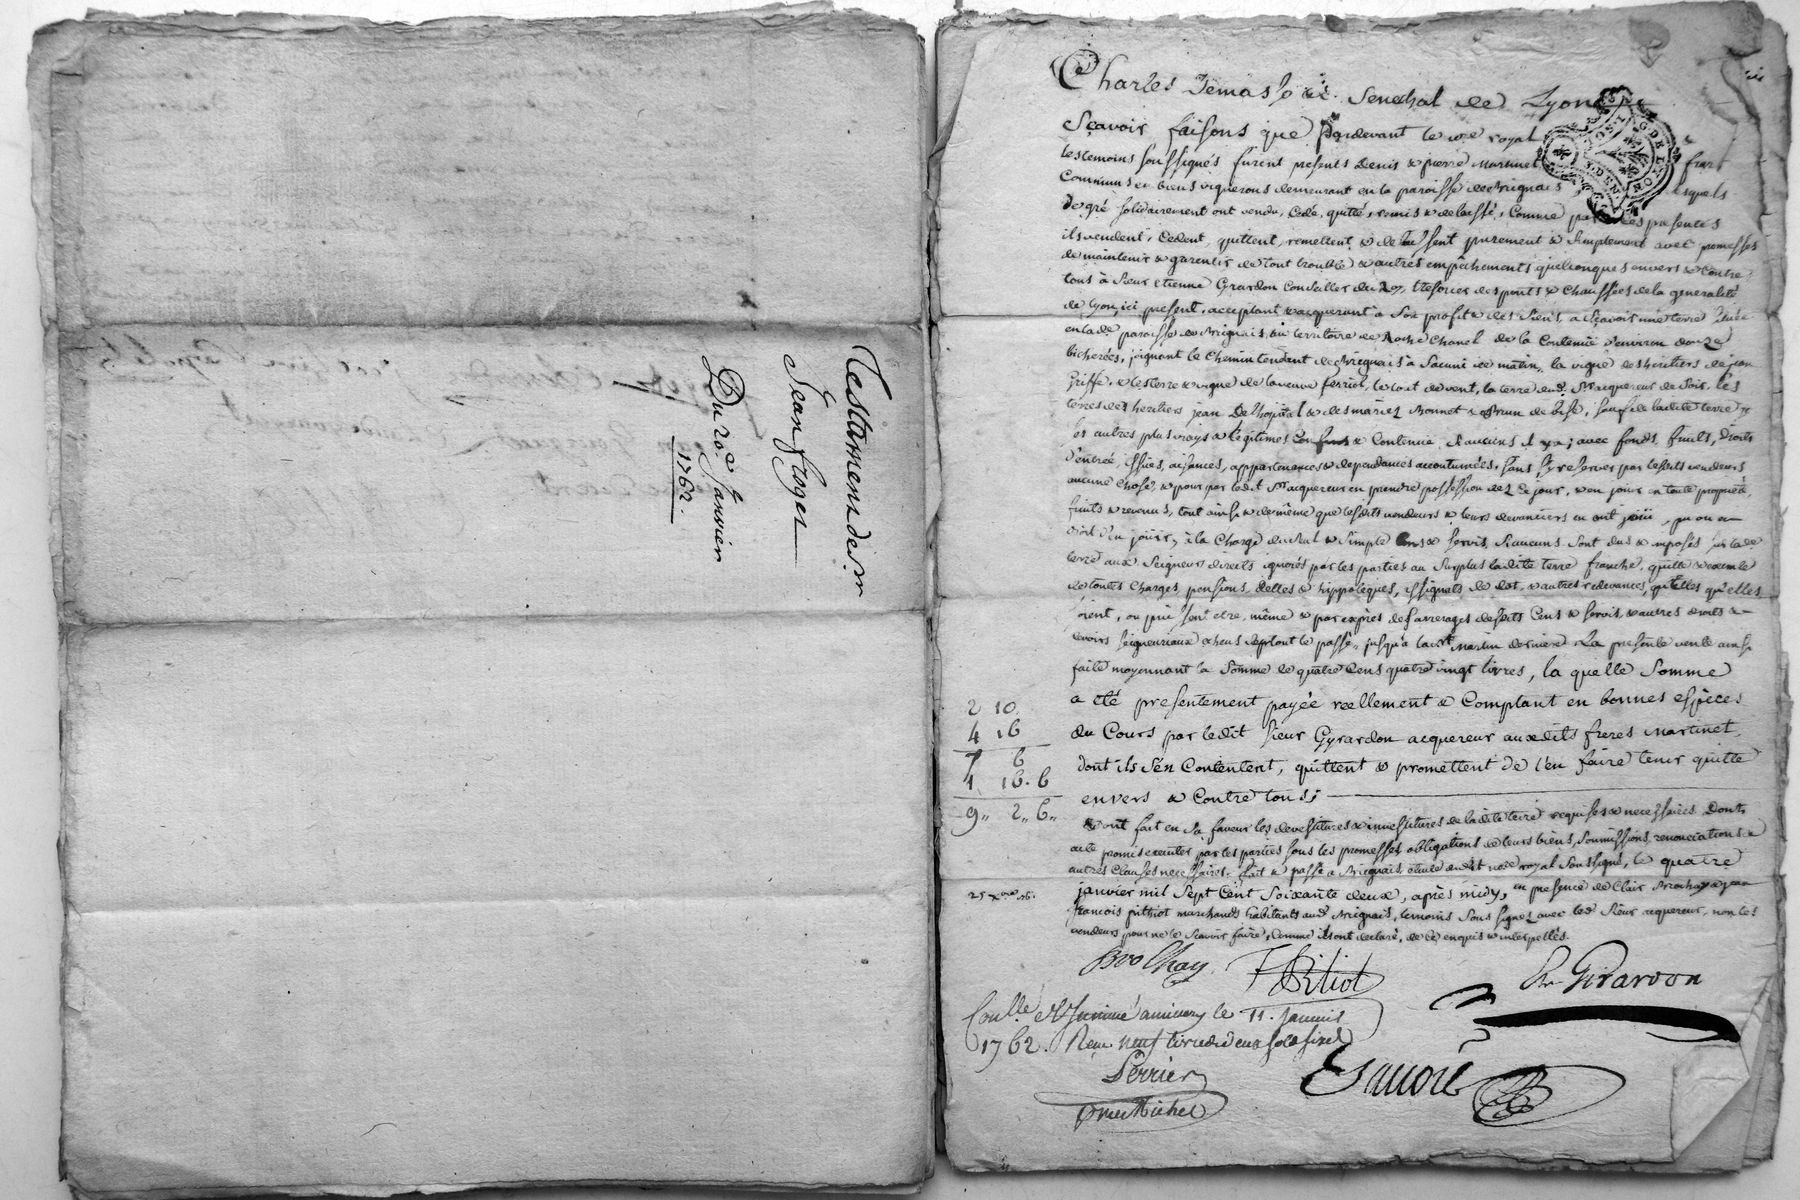 Testament de sr
Jean floger
Du 10.e Janvier
1762.
Charles Senechal de Lyon
Sçavoir faisons que pardevant le royal
les temoins soussignés furent presents Denis & pierre Martinet freres
Communs en biens vignerons demeurant en la paroisse de Brignais lesquels
de gré solidairement ont vendu, cedé, quitté, remis & delaissé, Comme par ces presentes
ils vendent, Cedent, quittent, remettent & delaissent purement & simplement avec promesses
de maintenir & garentir de tout trouble & autres empêchements quelconques envers & Contre
tous à sieur etienne Gyrardon Conseiller du Roy, tresorier des ponts & Chaussées de la generalité
de Lyon, ici present, acceptant & acquerant à son profit & des siens, a sçavoir une terre située
en la de paroisse de Brignais, au territoire de Roche Chanel de la Contenue d'environ douze
bicherées, joignant le Chemin tendant de Brignais à Soucieu de matin, la vigne des heritiers de jean
Griffe, & les terre & vigne de la veuve ferriol, le tout de vent, la terre dud. Sr acquereur de soir, les
terres des heritiers jean Delhopital & des mariez Monnet & Brun de bise, sauf de ladite terre
ses autres plus vrays & legitimes Confins & Contenue si aucuns il y a; avec fonds, fruits, droits
d'entrée, issües, aisances, appartenances & dependances accoutumées, sans sy reserver par lesdits vendeurs
aucune Chose, & pour par ledit Sr acquereur en prendre possession dez Ce jour, & en jouir en toute proprieté
fruits & revenus, tout ainsi & de même que lesdits vendeurs & leurs devanciers en ont joüi, pu ou
droit d'en joüir, à la Charge du seul & simple Cens & servis si aucuns sont dus & imposés sur lade
terre aux Seigneurs directs ignorés par les parties au surplus ladite terre franche, quitte & exempte
de toutes Charges, pensions, dettes & hippoteques, assignats de dot, & autres redevances, qu'elles qu'elles
soient, ou puissent etre, même & par exprès des arrerages desdits Cens & servis, & autres droits &
devoirs seigneuriaux echeus de tout le passé, jusqu'à la St Martin derniere. La presente vente ainsi
faite moyennant la Somme de quatre Cens quatre vingt livres, la quelle Somme
a été presentement payée reellement & Comptant en bonnes espèces
du Cours par ledit sieur Gyrardon acquereur auxdits freres Martinet
dont ils s'en Contentent, quittent & promettent de l'en faire tenir quitte
envers & Contre tous;
2 10
4 16
7 6
1 16. 6
9,, 2,, 6,,
& ont fait en sa faveur les devestitures & investitures de ladite terre requises & necessaires Dont
acte promis executer par les parties sous les promesses, obligations de leurs biens, soumissions, renonciations &
autres Clauses necessaires. fait & passé a Brignais etude dudit nore royal soussigné, le quatre
janvier mil Sept Cent Soixante deux, après midy, en presence de Clair Brochay & jean
francois pithiot marchands habitants aud. Brignais, temoins sous signez avec led. sieur acquereur, non les
vendeurs pour ne le sçavoir faire, Comme ils ont declaré, de Ce enquis & interpellés.
Brochay
F Pitiot
Girardon
le 11. Janvier
1762. Reçu neuf livres deux sols six d
Perrier